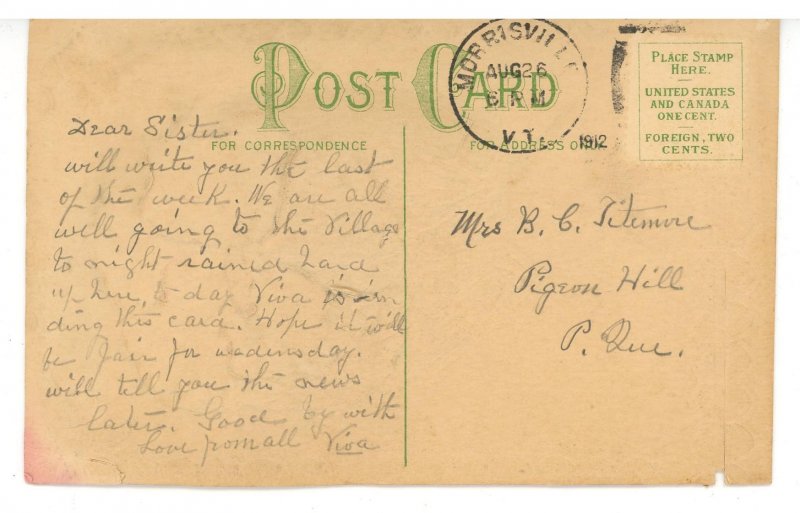 POST CARD
FOR CORRESPONDENCE
FOR ADDRESS
MORRISVILLE
AUG 26
6 PM
VT.
1912
PLACE STAMP
HERE.
UNITED STATES
AND CANADA
ONE CENT.
FOREIGN, TWO
CENTS.
Dear Sister.
will write you the last
of the week. We are all
well going to the Village
to night rained hard
up here, to day Viva is
ding this card. Hope it will
be fair for wadensday.
will tell you the news
later. Good by with
Love from all Viva
Mrs B. C. Titemore
Pigeon Hill
P. Que.